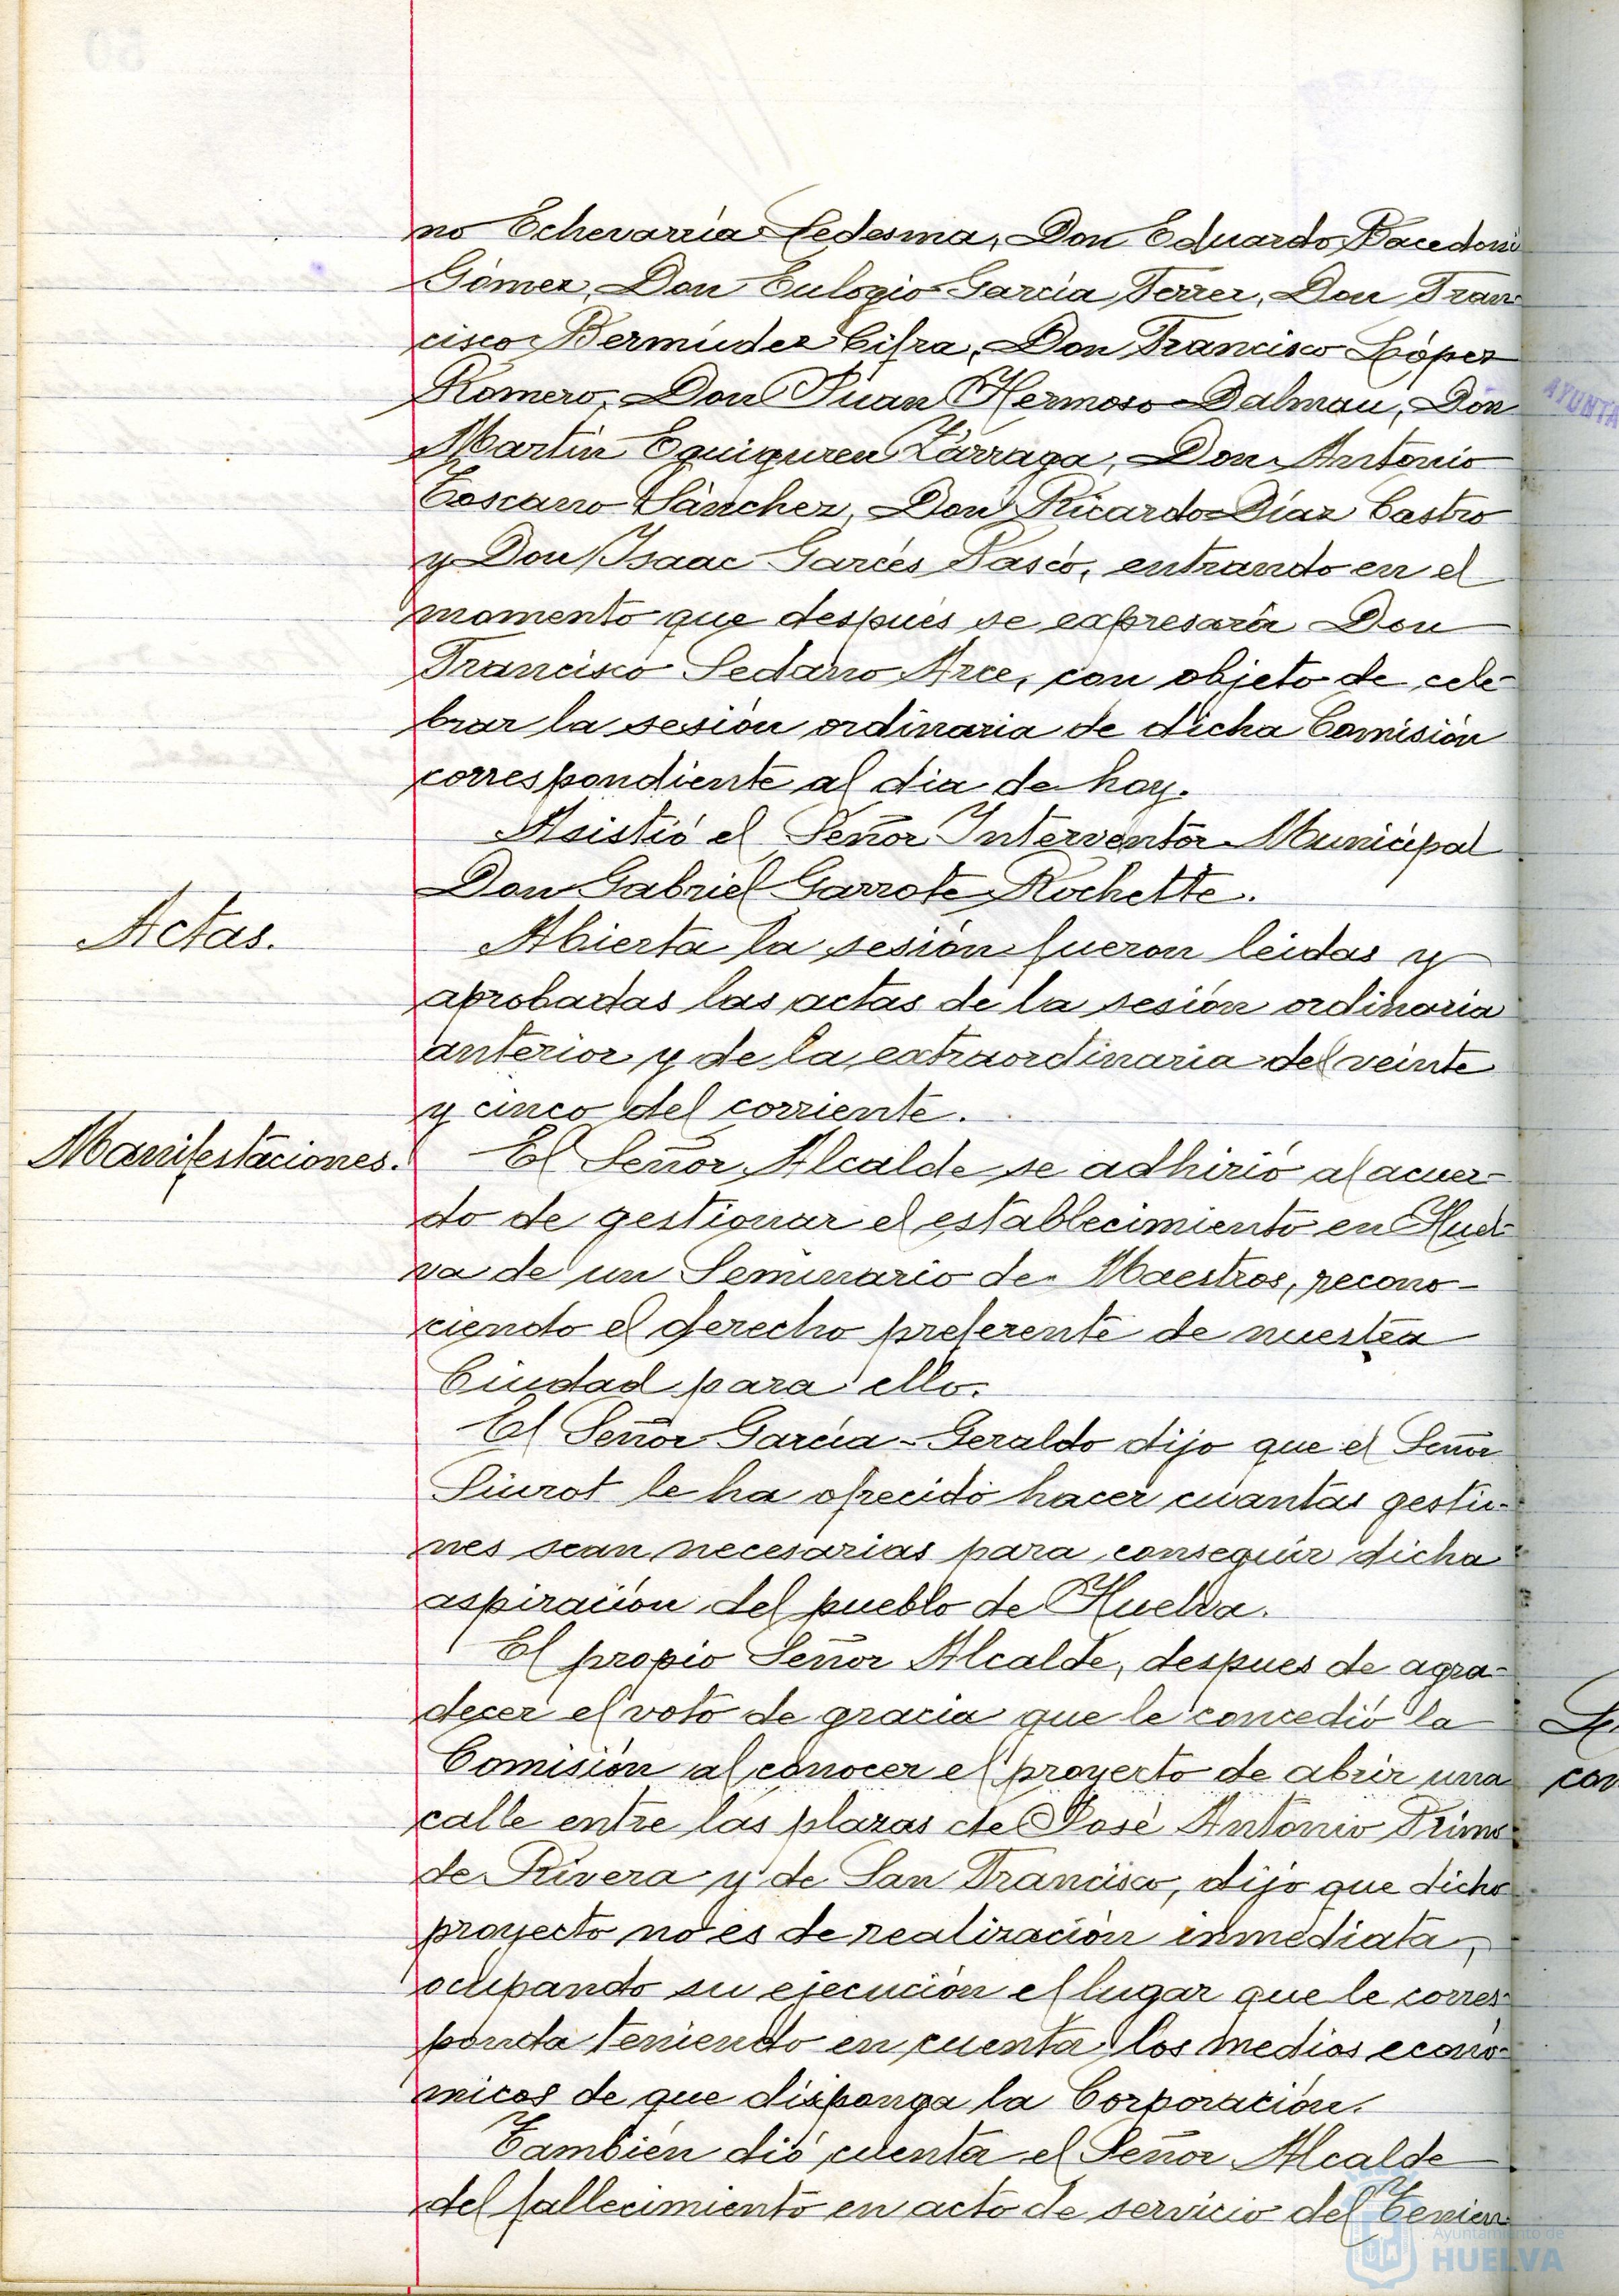 no Echevarría Ledesma, Don Eduardo Macedoni
Gómez, Don Eulogio García Ferrer, Don Fran
cisco Bermúdez Cifra, Don Francisco López
Romero, Don Juan Hermoso Dalmau, Don
Martín Eguiguren Zárraga, Don Antonio
Toscano Sánchez, Don Ricardo Díaz Castro
y Don Isaac Garcés Pascó, entrando en el
momento que después se expresará Don
Francisco Sedano Arce, con objeto de cele-
brar la sesión ordinaria de dicha Comisión
correspondiente al día de hoy.
Asistió el Señor Interventor Municipal
Don Gabriel Garrote Rochette.
Actas.
Abierta la sesión fueron leidas y
aprobadas las actas de la sesión ordinaria
anterior y de la extraordinaria del veinte
y cinco del corriente.
Manifestaciones.
El Señor Alcalde se adhirió al acuer-
do de gestionar el establecimiento en Huel-
va de un Seminario de Maestros, recono-
ciendo el derecho preferente de nuestra
Ciudad para ello.
El Señor García-Geraldo dijo que el Señor
Siurot le ha ofrecido hacer cuantas gestio-
nes sean necesarias para conseguir dicha
aspiración del pueblo de Huelva.
El propio Señor Alcalde, despues de agra-
decer el voto de gracia que le concedió la
Comisión al conocer el proyecto de abrir una
calle entre las plazas de José Antonio Primo
de Rivera y de San Francisco, dijo que dicho
proyecto no es de realización inmediata,
ocupando su ejecución el lugar que le corres-
ponda teniendo en cuenta los medios econó-
micos de que disponga la Corporación.
También dió cuenta el Señor Alcalde
del fallecimiento en acto de servicio del Tenien
AYUNTA
Ayuntamiento de
HUELVA